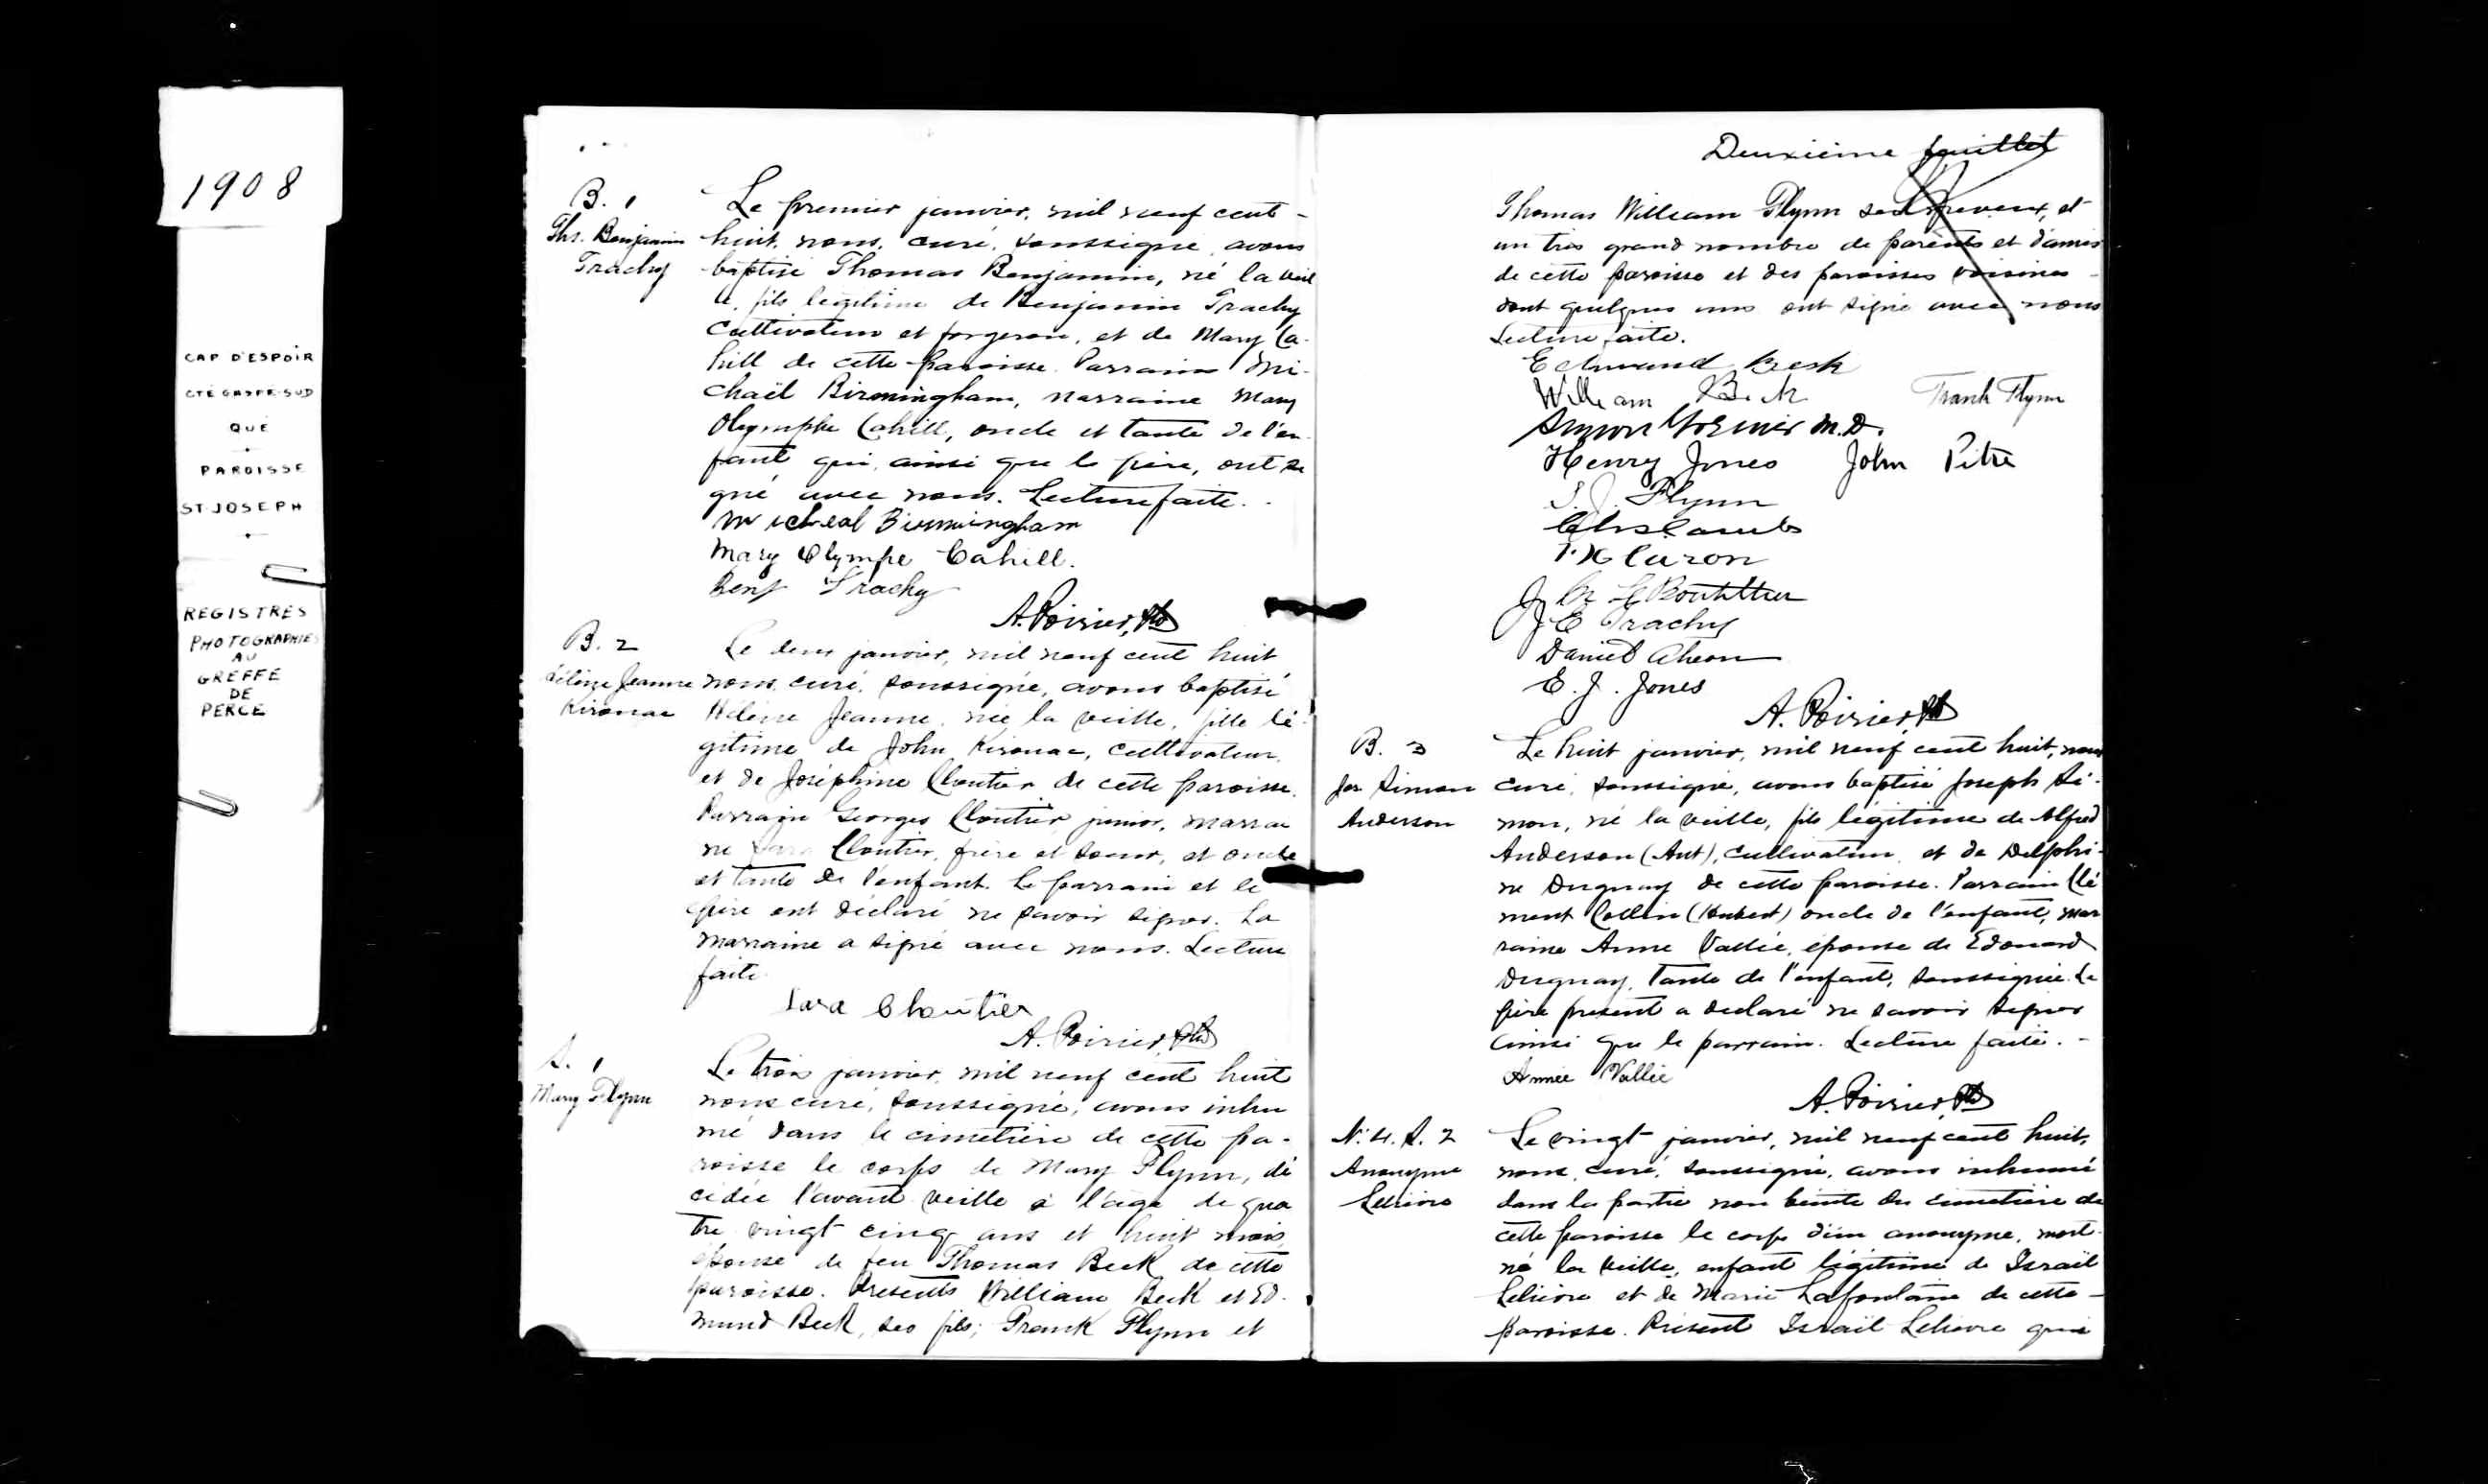 1908
CAP D'ESPOIR
CTÉ GASPÉ-SUD
QUÉ
PAROISSE
ST-JOSEPH
REGISTRES
PHOTOGRAPHIÉS
AU
GREFFE
DE
PERCÉ
B. 1
Ths. Benjamin
Trachy
Le premier janvier, mil neuf cent-
huit, nous, curé, soussigné, avons
baptisé Thomas Benjamin, né la veil
le, fils légitime de Benjamin Trachy
cultivateur et forgeron, et de Mary Ca-
hill de cette paroisse. Parrain Mi-
chaël Birmingham, marraine Mary
Olymphe Cahill, oncle et tante de l'en-
fant qui, ainsi que le père, ont si
gné avec nous. Lecture faite.
Micheal Birmingham
Mary Olympe Cahill.
Benj Trachy
A. Poirier, Ptre
B. 2
Hélène Jeanne
Kirouac
Le deux janvier, mil neuf cent huit
nous, curé, soussigné, avons baptisé
Hélène Jeanne, née la veille, fille lé-
gitime de John Kirouac, cultivateur,
et de Joséphine Cloutier de cette paroisse.
Parrain Georges Cloutier junior, marrai
ne Sara Cloutier, frère et soeur, et oncle
et tante de l'enfant. Le parrain et le
père ont déclaré ne savoir signer. La
marraine a signé avec nous. Lecture
faite.
Sara Cloutier
A. Poirier, Ptre
S. 1
Mary Flynn
Le trois janvier, mil neuf cent huit
nous curé, soussigné, avons inhu
mé dans le cimetière de cette pa-
roisse le corps de Mary Flynn, dé
cédée l'avant veille à l'âge de qua
tre vingt cinq ans et huit mois,
épouse de feu Thomas Beck de cette
paroisse. Présents William Beck et Ed-
mund Beck, ses fils; Frank Flynn et
Deuxième feuillet
Thomas William Flynn ses neveux, et
un très grand nombre de parents et d'amis
de cette paroisse et des paroisses voisines
dont quelques uns ont signé avec nous
Lecture faite.
Edmund Beck
William Beck Frank Flynn
M.D.
Henry Jones John Pitre
T. J. Flynn
Chs. 
Caron
J. LeBoutillier
J E Trachy
Daniel Ahern
E. J. Jones
A. Poirier, Ptre
B. 3
Jos Simon
Anderson
Le huit janvier, mil neuf cent huit, nous
curé, soussigné, avons baptisé Joseph Si-
mon, né la veille, fils légitime de Alfred
Anderson (Ant), cultivateur, et de Delphi-
ne Duguay de cette paroisse. Parrain Clé
ment Collin (Hubert) oncle de l'enfant, mar
raine Anne Vallée, épouse de Edouard
Duguay, tante de l'enfant, soussignée. Le
père présent a déclaré ne savoir signer
ainsi que le parrain. Lecture faite. -
Annie Vallée
A. Poirier, Ptre
N. 4. S. 2
Anonyme
Lelièvre
Le vingt janvier, mil neuf cent huit,
nous, curé, soussigné, avons inhumé
dans la partie non bénite du cimetière de
cette paroisse le corps d'un anonyme, mort-
né la veille, enfant légitime de Israël
Lelièvre et de Marie Lafontaine de cette
paroisse. Présent Israël Lelièvre qui